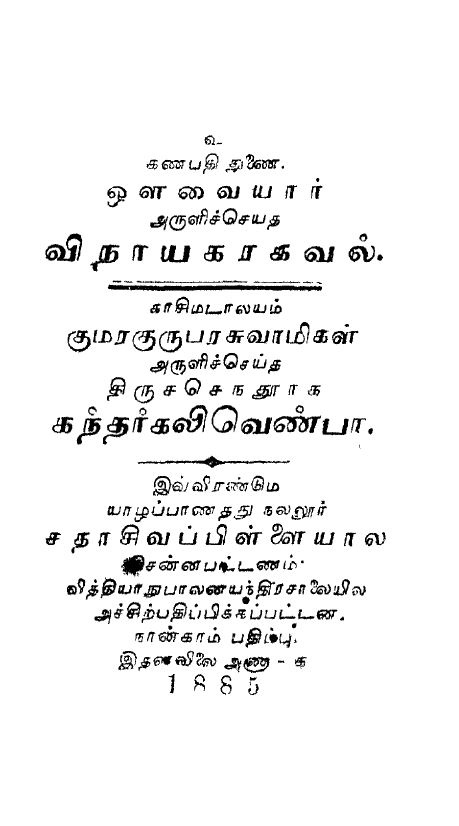 உ
கணபதி துணை.
ஔவையார்
அருளிச்செய்த
விநாயகரகவல்.
காசிமடாலயம்
குமரகுருபரசுவாமிகள்
அருளிச்செய்த
திருச்செந்தூர்க்
கந்தர்கலிவெண்பா.
இவ்விரண்டும்
யாழ்ப்பாணத்து நல்லூர்
சதாசிவப்பிள்ளையால்
சென்னபட்டணம்:
வித்தியாநுபாலனயந்திரசாலையில்
அச்சிற்பதிப்பிக்கப்பட்டன.
நான்காம் பதிப்பு.
இதன்விலை அணா - க
1885